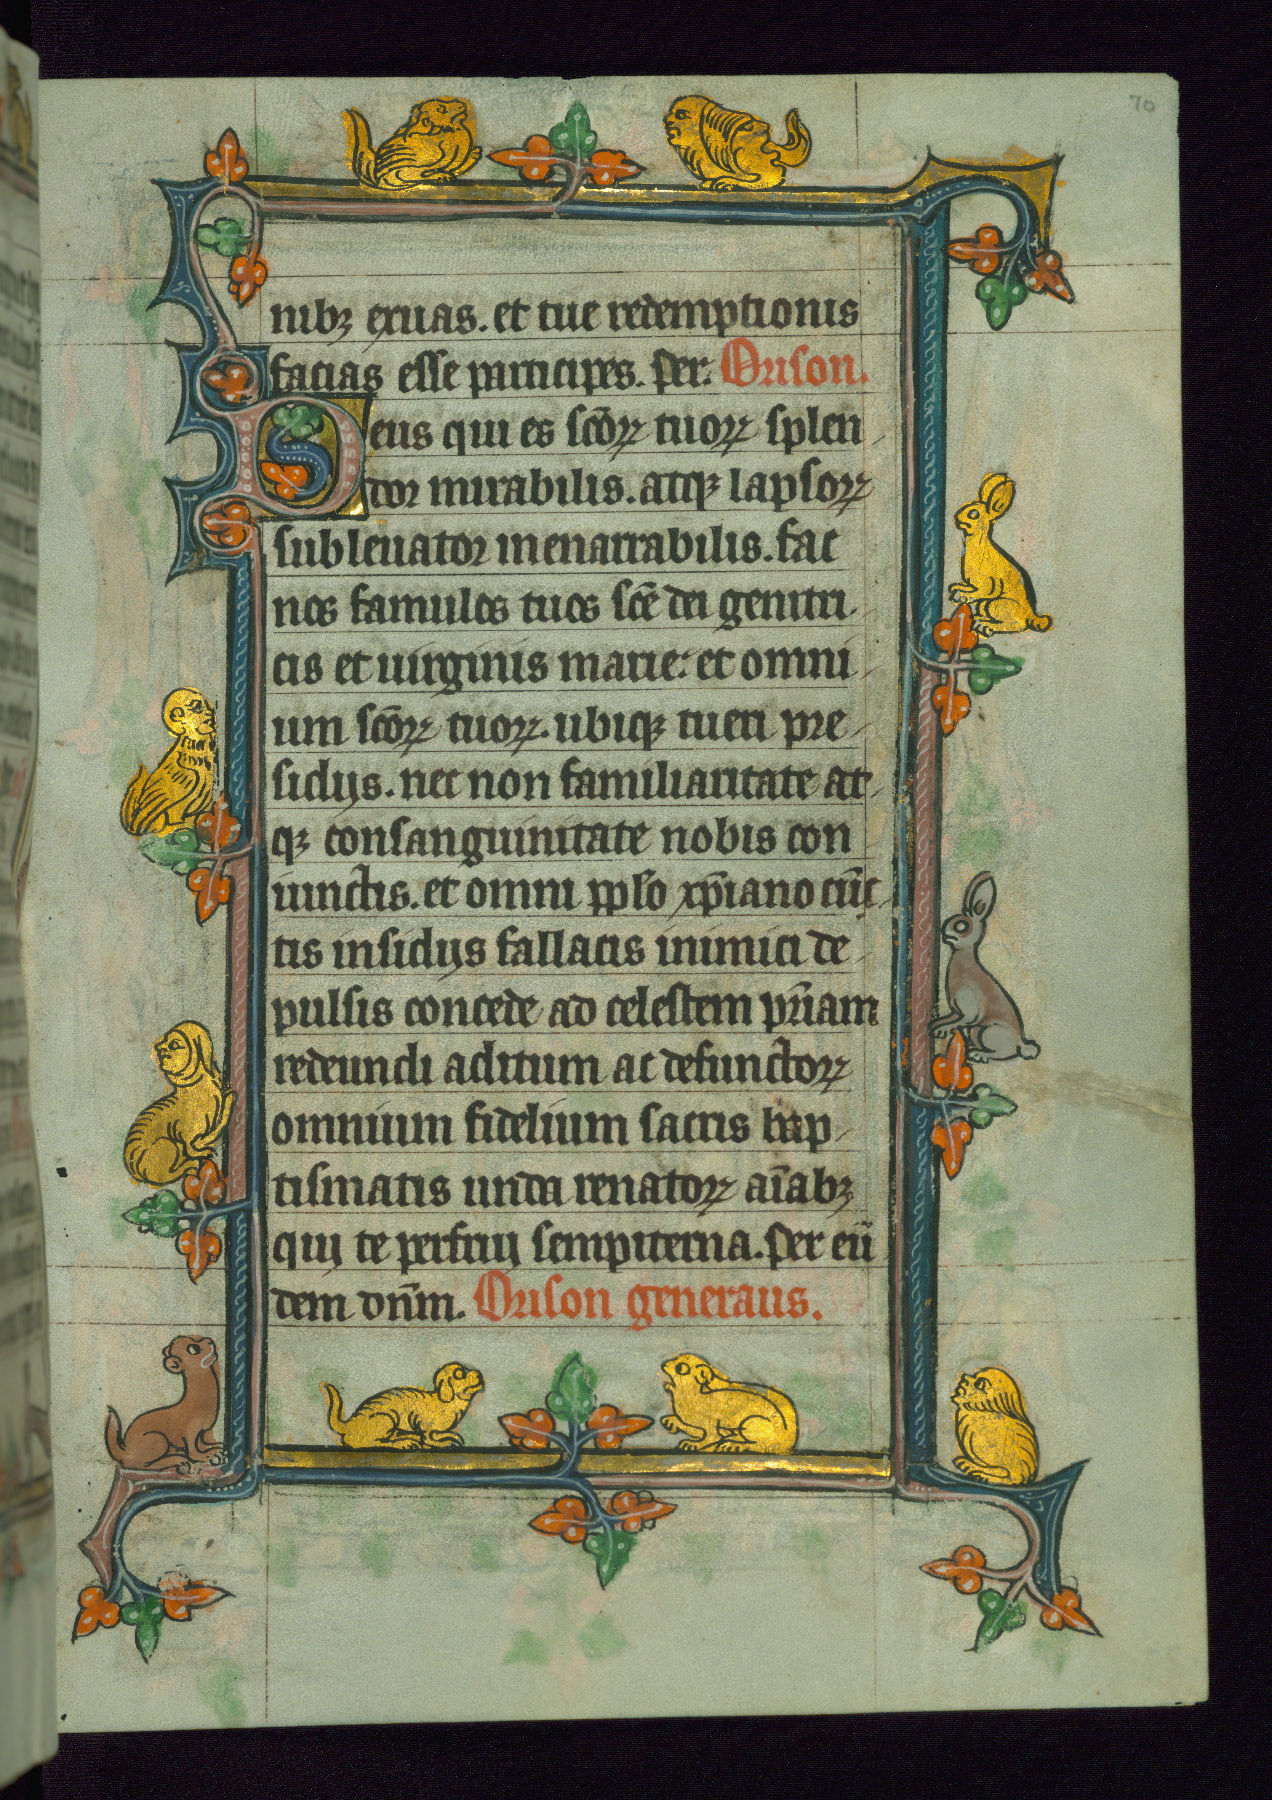 70
nibꝫ exuas. et tue redemptionis
facias esse participes. Per. Orison.
Deus qui es sc̄oꝝ tuoꝝ splen
dor mirabilis. atqꝫ lapsoꝝ
subleuator inenarrabilis. fac
nos famulos tuos sc̄e dei genitri
cis et uirginis marie: et omni
um sc̄oꝝ tuoꝝ. ubiqꝫ tueri pre
sidijs. nec non familiaritate at
qꝫ consanguinitate nobis con
iunctis. et omni pplo xp̄iano cūc
tis insidijs fallacis inimici de
pulsis concede ad celestem pr̄iam
redeundi aditum ac defunctoꝝ
omnium fidelium sacris bap
tismatis unda renatoꝝ aīabꝫ
quij te perfruj sempiterna. Per eū
dem dn̄m. Orison generaus.